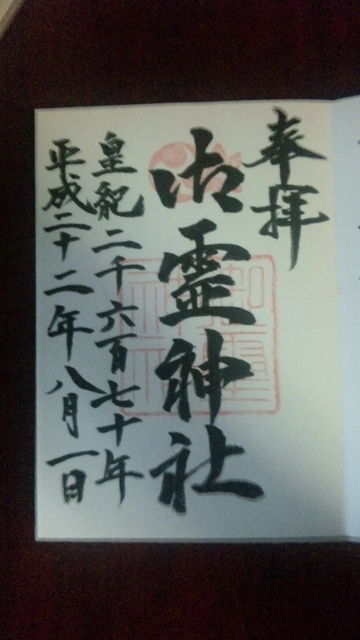 奉拝
御霊神社
皇紀二千六百七十年
平成二十二年八月一日